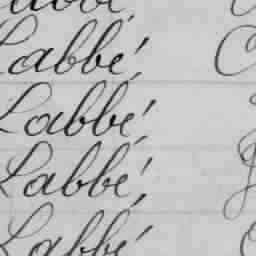 Labbé,
Labbé,
Labbé,
Labbé,
Labbé,